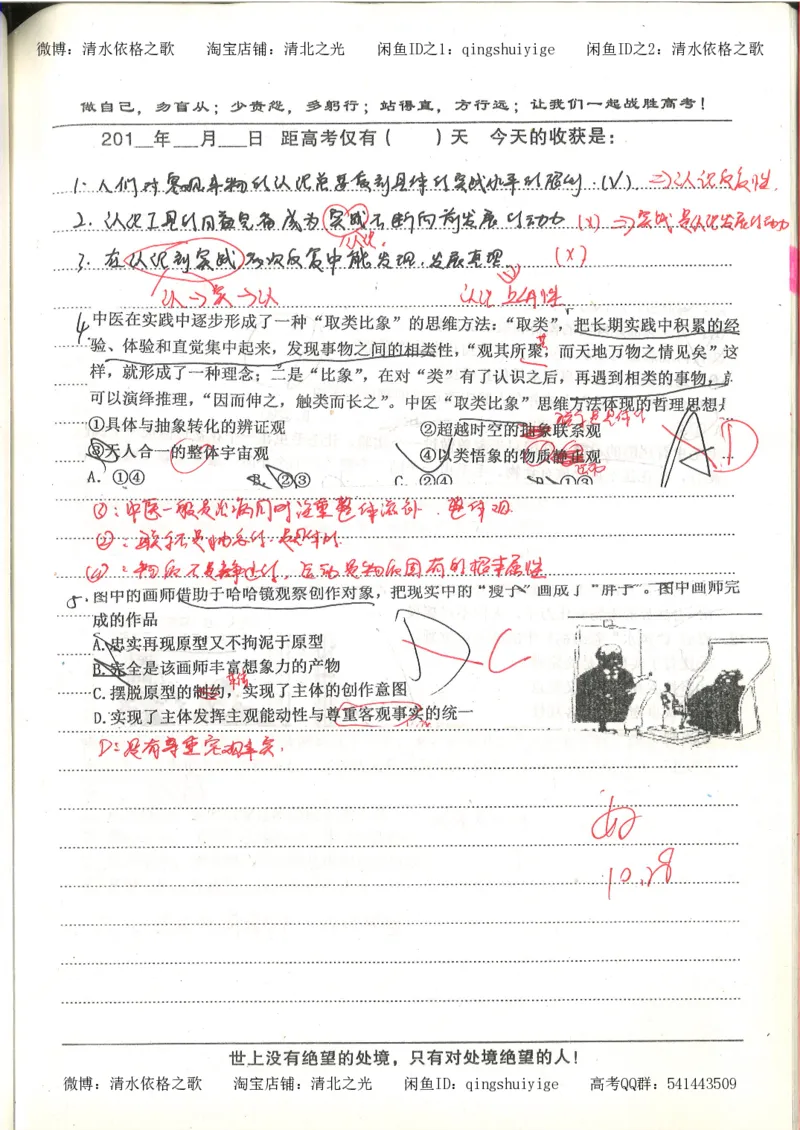 微博：清水依格之歌 淘宝店铺：清北之光 闲鱼ID之1：qingshuiyige 闲鱼ID之2：清水依格之歌
做自己，勿盲从；少责怨，多躬行；站得直，方行远；让我们一起战胜高考！
201__年___月___日 距高考仅有（ ）天 今天的收获是：
1. 人们对客观事物的认识总要受到具体的实践水平的限制.（√） ⇒认识反复性.
2. 认识工具的日益完备成为实践不断向前发展的动力 （×） ⇒实践是认识发展的动力
认识.
3. 在认识到实践的多次反复中能发现、发展真理. （×）
认→实→认 认识
4. 中医在实践中逐步形成了一种“取类比象”的思维方法：“取类”，把长期实践中积累的经
验、体验和直觉集中起来，发现事物之间的相类性，“观其所聚，而天地万物之情见矣”这
其
样，就形成了一种理念；二是“比象”，在对“类”有了认识之后，再遇到相类的事物，
可以演绎推理，“因而伸之，触类而长之”。中医“取类比象”思维方法体现的哲理思想是
①具体与抽象转化的辨证观 ②超越时空的抽象联系观
③天人合一的整体宇宙观 ④以类悟象的物质静止观
A. ①④ B. ②③ C. ②④ D. ①③
A D
③：中医一般是治病同时注重整体 整体观
②：联系不是抽象的.是具体的
④：物质不是静止的，运动是物质固有的根本属性
5. 图中的画师借助于哈哈镜观察创作对象，把现实中的“瘦子”画成了“胖子”。图中画师完
成的作品
A.忠实再现原型又不拘泥于原型
B.完全是该画师丰富想象力的产物
C.摆脱原型的制约，实现了主体的创作意图
D.实现了主体发挥主观能动性与尊重客观事实的统一
D C
D：没有尊重客观事实.
好
10.28
世上没有绝望的处境，只有对处境绝望的人！
微博：清水依格之歌 淘宝店铺：清北之光 闲鱼ID：qingshuiyige 高考QQ群：541443509